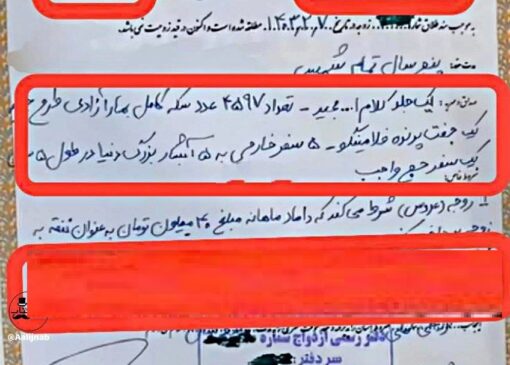 به موجب سند طلاق شماره ... زوجه در تاریخ ۱۴۰۳,۲,۷ مطلقه شده است و اکنون در قید زوجیت نمی باشد.
پنج سال تمام شمسی
یک جلد کلام ا... مجید - تعداد ۴۵۹۷ عدد سکه کامل بهار آزادی طرح
یک جفت پرنده فلامینگو - ۵ سفر خارجی به ۵ آبشار بزرگ دنیا در طول ۵
یک سفر حج واجب
۱ زوجه (عروس) شرط می کند که داماد ماهانه مبلغ ۴۰ میلیون تومان به عنوان نفقه به
@Aalijnab
دفتر رسمی ازدواج شماره
سردفتر: